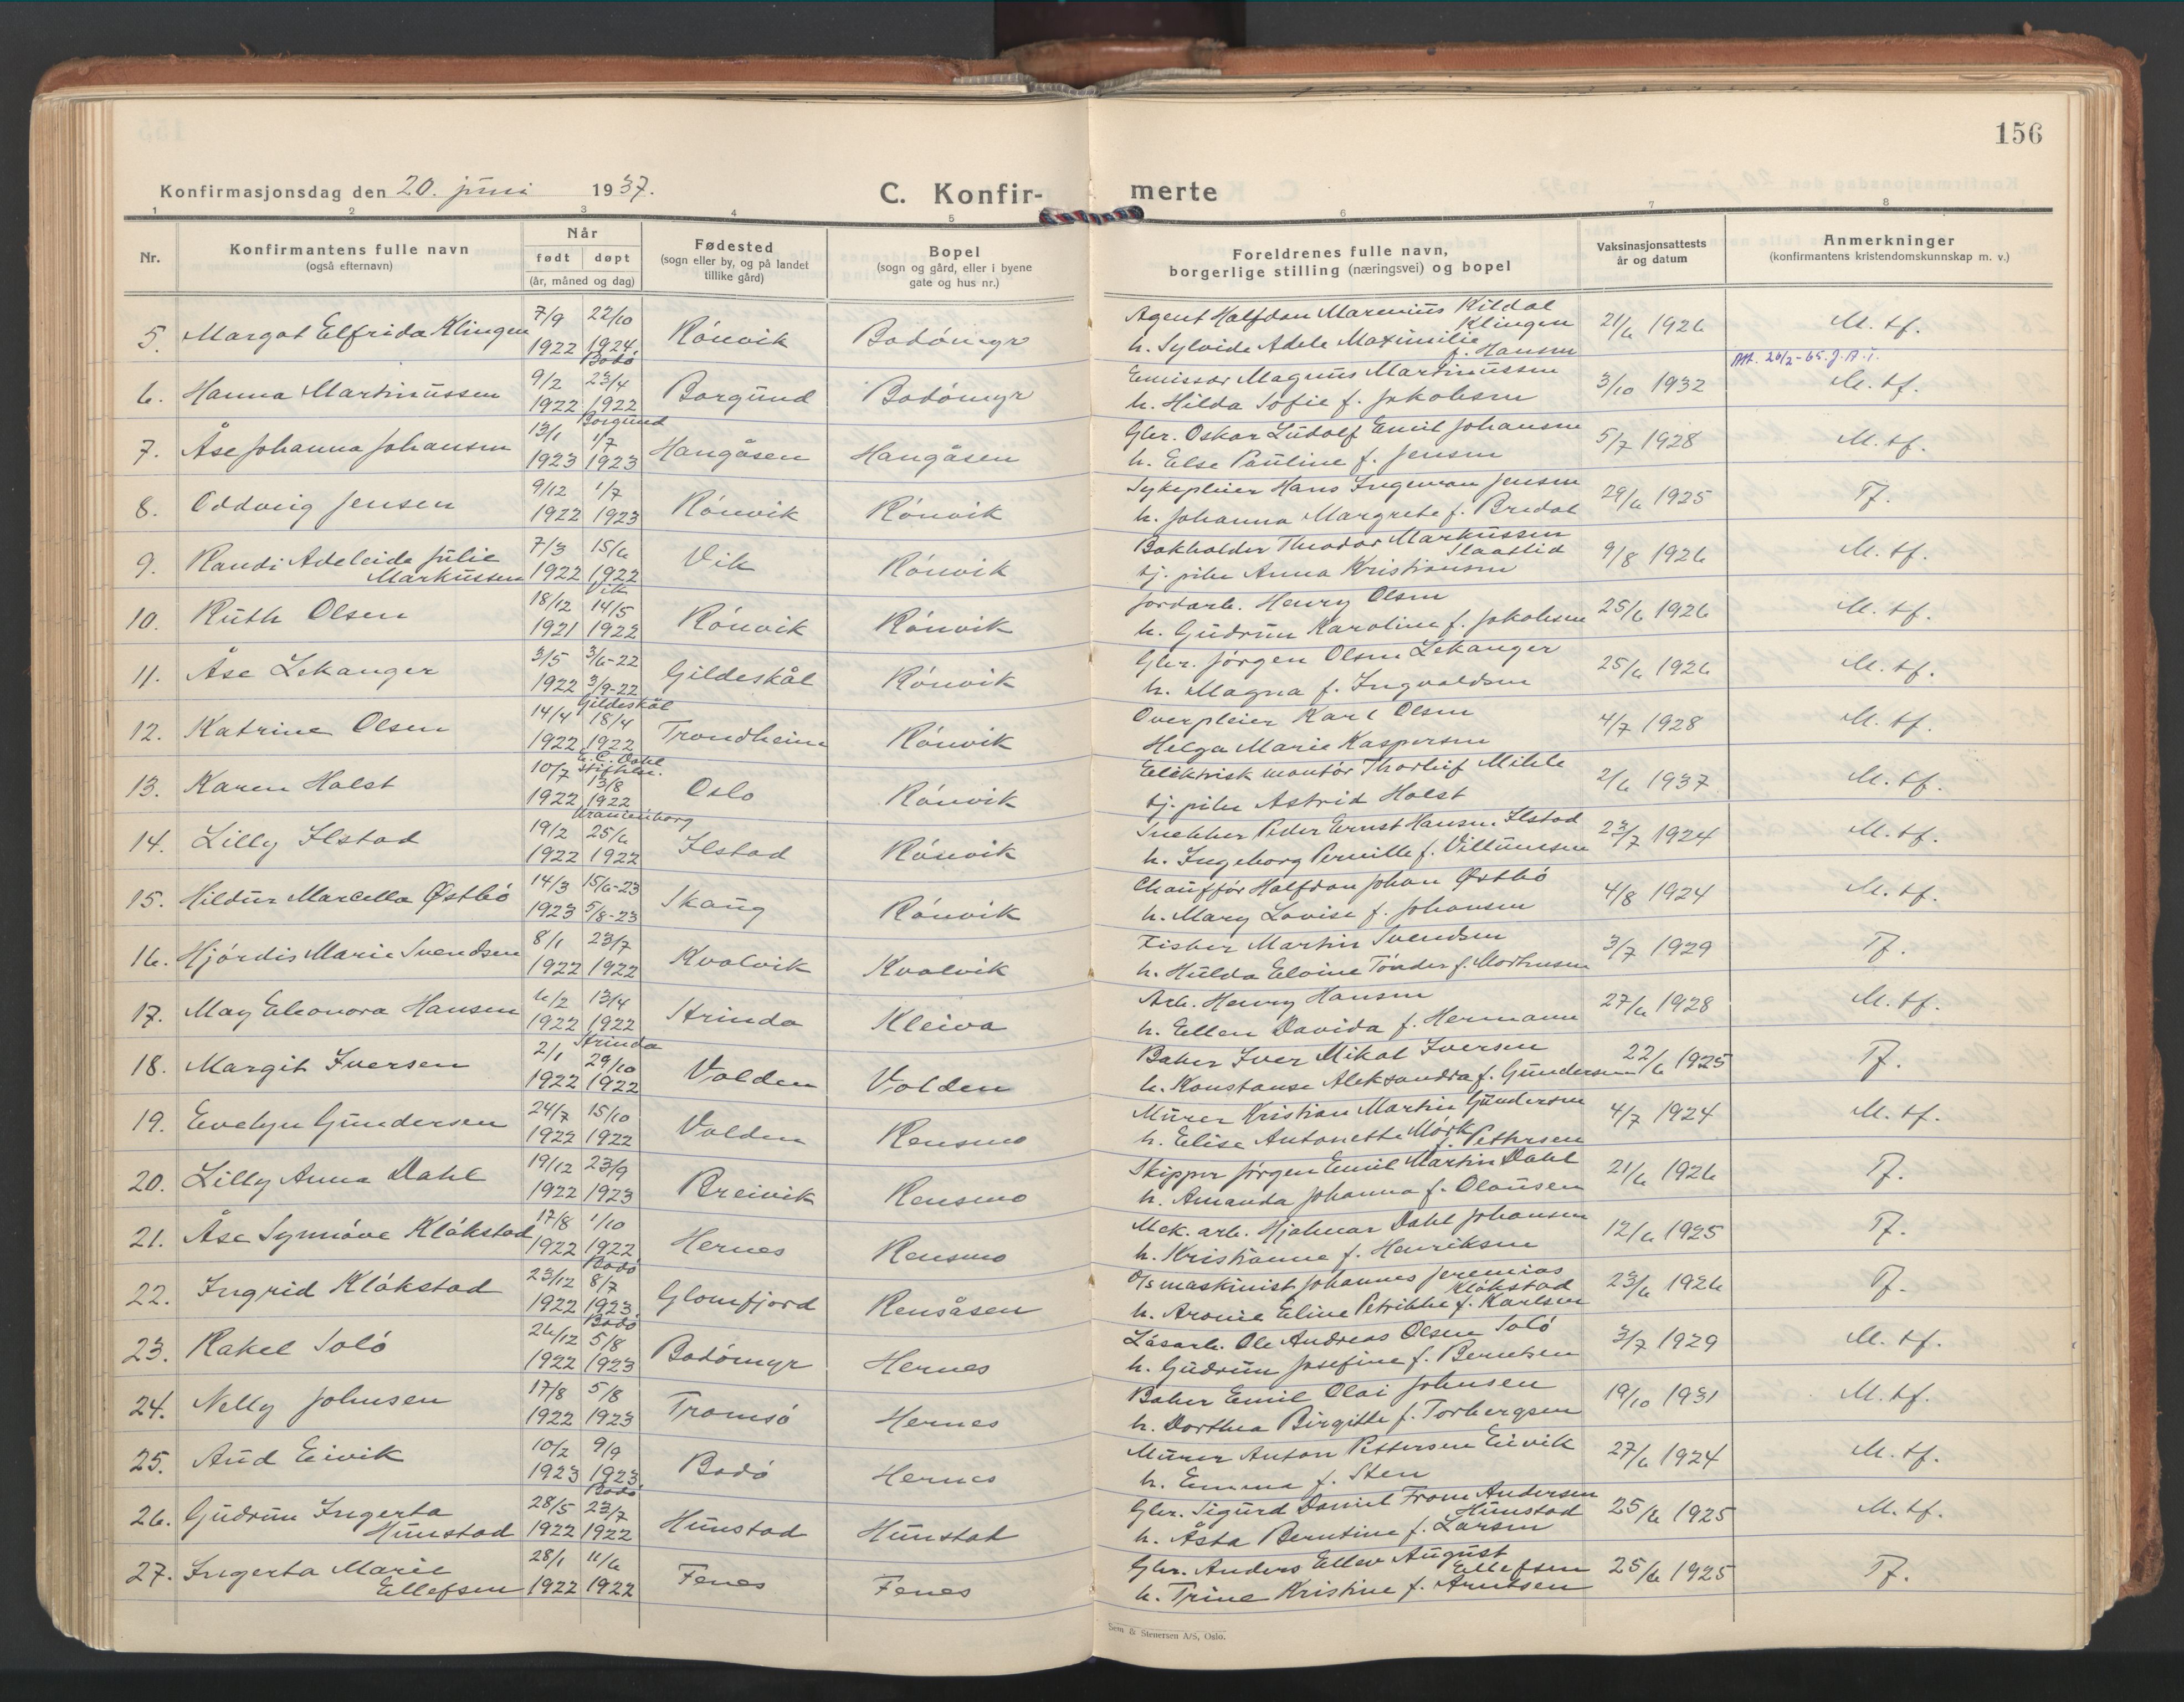 156
Konfirmasjonsdag den 20. juni 1937.
C. Konfir- merte
1 2 3 4 5 6 7 8
Nr.
Konfirmantens fulle navn
(også efternavn)
Når
født døpt
(år, måned og dag)
Fødested
(sogn eller by, og på landet
tillike gård)
Bopel
(sogn og gård, eller i byene
gate og hus nr.)
Foreldrenes fulle navn,
borgerlige stilling (næringsvei) og bopel
Vaksinasjonsattests
år og datum
Anmerkninger
(konfirmantens kristendomskunnskap m. v.)
5. Margot Elfrida Klingen 7/9 1922 22/10 1924 Bodó Rónvik Bodómyr Agent Halfdan Marenius Kildal Klingen 21/6 1926 M. tf.
h. Sylvide Adele Maximilie f. Hansen
Att. 20/2-65. J.A.I.
6. Hanna Martinussen 9/2 1922 23/4 1922 Borgund Borgund Bodómyr Emissær Magnus Martinussen 3/10 1932 M. tf.
h. Hilda Sofie f. Jakobsen
7. Åse Johanna Johansen 13/1 1923 1/7 1923 Hangåsen Hangåsen Gbr. Oskar Ludolf Emil Johansen 5/7 1928 M. tf.
h. Else Pauline f. Jensen
8. Oddveig Jensen 9/12 1922 1/7 1923 Rónvik Rónvik Sykepleier Hans Ingeman Jensen 29/6 1925 Tf.
h. Johanna Margrete f. Bredal
9. Randi Adeleide Julie Markussen 7/3 1922 15/6 1922 Vik Vik Rónvik Bokholder Theodor Markussen Slaatlid 9/8 1926 M. tf.
tj. pike Anna Kristiansen
10. Ruth Olsen 18/12 1921 14/5 1922 Rónvik Rónvik Jordarb. Henry Olsen 25/6 1926 M. tf.
h. Gudrun Karoline f. Jakobsen
11. Åse Lekanger 3/5 1922 3/6-22 3/9-22 Gildeskål Gildeskål Rónvik Gbr. Jórgen Olsen Lekanger 25/6 1926 M. tf.
h. Magna f. Ingvaldsen
12. Katrine Olsen 14/4 1922 18/4 1922 E. C. Dahl stiftelse. Trondheim Rónvik Overpleier Karl Olsen 4/7 1928 M. tf.
Helga Marie Kaspersen
13. Karen Holst 10/7 1922 13/8 1922 Uranienborg Oslo Rónvik Elektrisk montór Thorleif Mikle 2/6 1937 M. tf.
tj. pike Astrid Holst
14. Lilly Ilstad 19/2 1922 25/6 1922 Ilstad Rónvik Snekker Peder Ernst Hansen Ilstad 23/7 1924 M. tf.
h. Ingeborg Pernille f. Villumsen
15. Hildur Marcella Østbó 14/3 1923 15/6-23 5/8-23 Skaug Rónvik Chauffór Halfdan Johan Østbó 4/8 1924 M. tf.
h. Mary Lovise f. Johansen
16. Hjórdis Marie Svendsen 8/1 1922 23/7 1922 Kvalvik Kvalvik Fisker Martin Svendsen 3/7 1929 Tf.
h. Hulda Elvine Tónder f. Morthensen
17. May Eleonora Hansen 6/2 1922 13/4 1922 Strinda Strinda Kleiva Arb. Henry Hansen 27/6 1928 M. tf.
h. Ellen Davida f. Hermann
18. Margit Iversen 2/1 1922 29/10 1922 Volden Volden Baker Iver Mikal Iversen 22/6 1925 Tf.
h. Konstanse Aleksandra f. Gundersen
19. Evelyn Gundersen 24/7 1922 15/10 1922 Volden Rensmo Murer Kristian Martin Gundersen 4/7 1924 M. tf.
h. Elise Antonette Mórk f. Pettersen
20. Lilly Anna Dahl 19/12 1922 23/9 1923 Breivik Rensmo Skipper Jórgen Emil Martin Dahl 21/6 1926 Tf.
h. Amanda Johanna f. Olausen
21. Åse Synnóve Klókstad 17/8 1922 1/10 1922 Bodó Hernes Rensmo Mek. arb. Hjalmar Dahl Johansen 12/6 1925 Tf.
h. Kristianne f. Henriksen
22. Ingrid Klókstad 23/12 1922 8/7 1923 Bodó Glomfjord Rensåsen o/s maskinist Johannes Jeremias Klókstad 23/6 1926 Tf.
h. Aronie Eline Petrikke f. Karlsen
23. Rakel Soló 26/12 1922 5/8 1923 Bodómyr Hernes Lósarb. Ole Andreas Olsen Soló 3/7 1929 M. tf.
h. Gudrun Josefine f. Berntsen
24. Nelly Johnsen 17/8 1922 5/8 1923 Tromsó Hernes Baker Emil Olai Johnsen 19/10 1931 M. tf.
h. Dorthea Birgitte f. Torbergsen
25. Aud Eivik 10/2 1923 9/9 1923 Bodó Bodó Hernes Murer Anton Pettersen Eivik 27/6 1924 M. tf.
h. Emma f. Sten
26. Gudrun Ingerta Hunstad 28/5 1922 23/7 1922 Hunstad Hunstad Gbr. Sigurd Daniel From Andersen Hunstad 25/6 1925 M. tf.
h. Åsta Berntine f. Larsen
27. Ingerta Marie Ellefsen 28/1 1922 11/6 1922 Fenes Fenes Gbr. Anders Ellev August Ellefsen 25/6 1925 Tf.
h. Trine Kristine f. Arntsen
Sem & Stenersen A/S, Oslo.